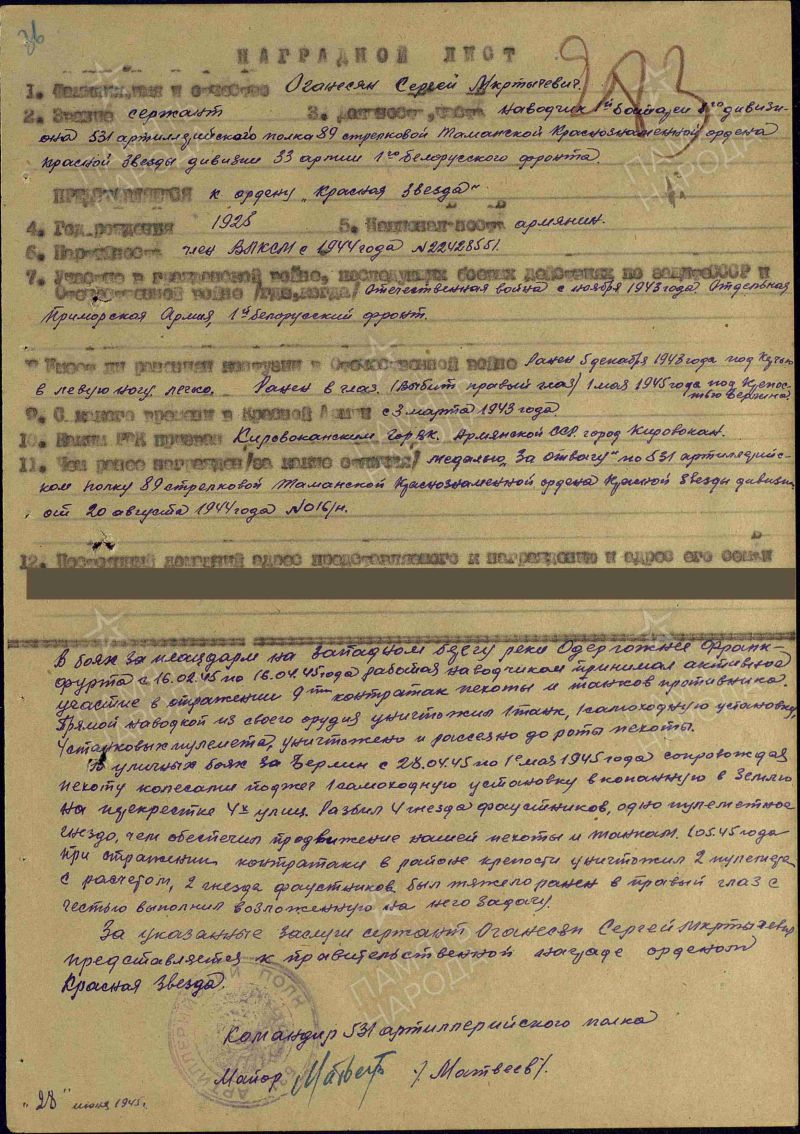 36
НАГРАДНОЙ ЛИСТ
1. Фамилия, имя и отчество Оганесян Сергей Мкртычевич.
2. Звание сержант 3. Должность, часть наводчик 1й батареи 2го дивизи-
она 531 артиллерийского полка 89 стрелковой Таманской Краснознаменной ордена
Красной Звезды дивизии 33 армии 1го Белорусского фронта.
ПРЕДСТАВЛЯЕТСЯ к ордену "Красная Звезда".
4. Год рождения 1925 5. Национальность армянин.
6. Партийность член ВЛКСМ с 1944 года №22428551.
7. Участие в гражданской войне, последующих боевых действиях по защите СССР и
Отечественной войне /где, когда/ Отечественная война с ноября 1943 года Отдельная
Приморская Армия, 1й Белорусский фронт.
Имеет ли ранения и контузии в Отечественной войне Ранен 5 декабря 1943 года под Керчью
в левую ногу легко. Ранен в глаз. (Выбит правый глаз) 1 мая 1945 года под Крепос-
тью Берлина.
9. С какого времени в Красной Армии с 3 марта 1943 года.
10. Каким РВК призван Кировоканским ГорВК. Армянской ССР город Кировокан.
11. Чем ранее награжден /за какие отличия/ медалью "За отвагу" по 531 артиллерийс-
ком полку 89 стрелковой Таманской Краснознаменной ордена Красной Звезды дивизии
от 20 августа 1944 года №016/н.
12. Постоянный домашний адрес представляемого к награждению и адрес его семьи
В боях за плацдарм на западном берегу реки Одер южнее Франк-
фурта с 16.02.45 по 16.04.45 года работая наводчиком принимал активное
участие в отражении контратак пехоты и танков противника.
Прямой наводкой из своего орудия уничтожил 1 танк, 1 самоходную установку,
4 станковых пулемета, уничтожено и рассеяно до роты пехоты.
В уличных боях за Берлин с 28.04.45 по 1е мая 1945 года сопровождая
пехоту колесами поджег 1 самоходную установку вкопанную в землю
на перекрестке 4х улиц. Разбил 4 гнезда фаустников, одно пулеметное
гнездо, чем обеспечил продвижение нашей пехоты и танкам. 1.05.45 года
при отражении контратаки в районе крепости уничтожил 2 пулемета
с расчетом, 2 гнезда фаустников был тяжело ранен в правый глаз с
честью выполнил возложенную на него задачу.
За указанные заслуги сержант Оганесян Сергей Мкртычевич
представляется к правительственной награде орденом
Красная Звезда.
Командир 531 артиллерийского полка
Майор Матвеев /Матвеев/.
"28" июня 1945г.